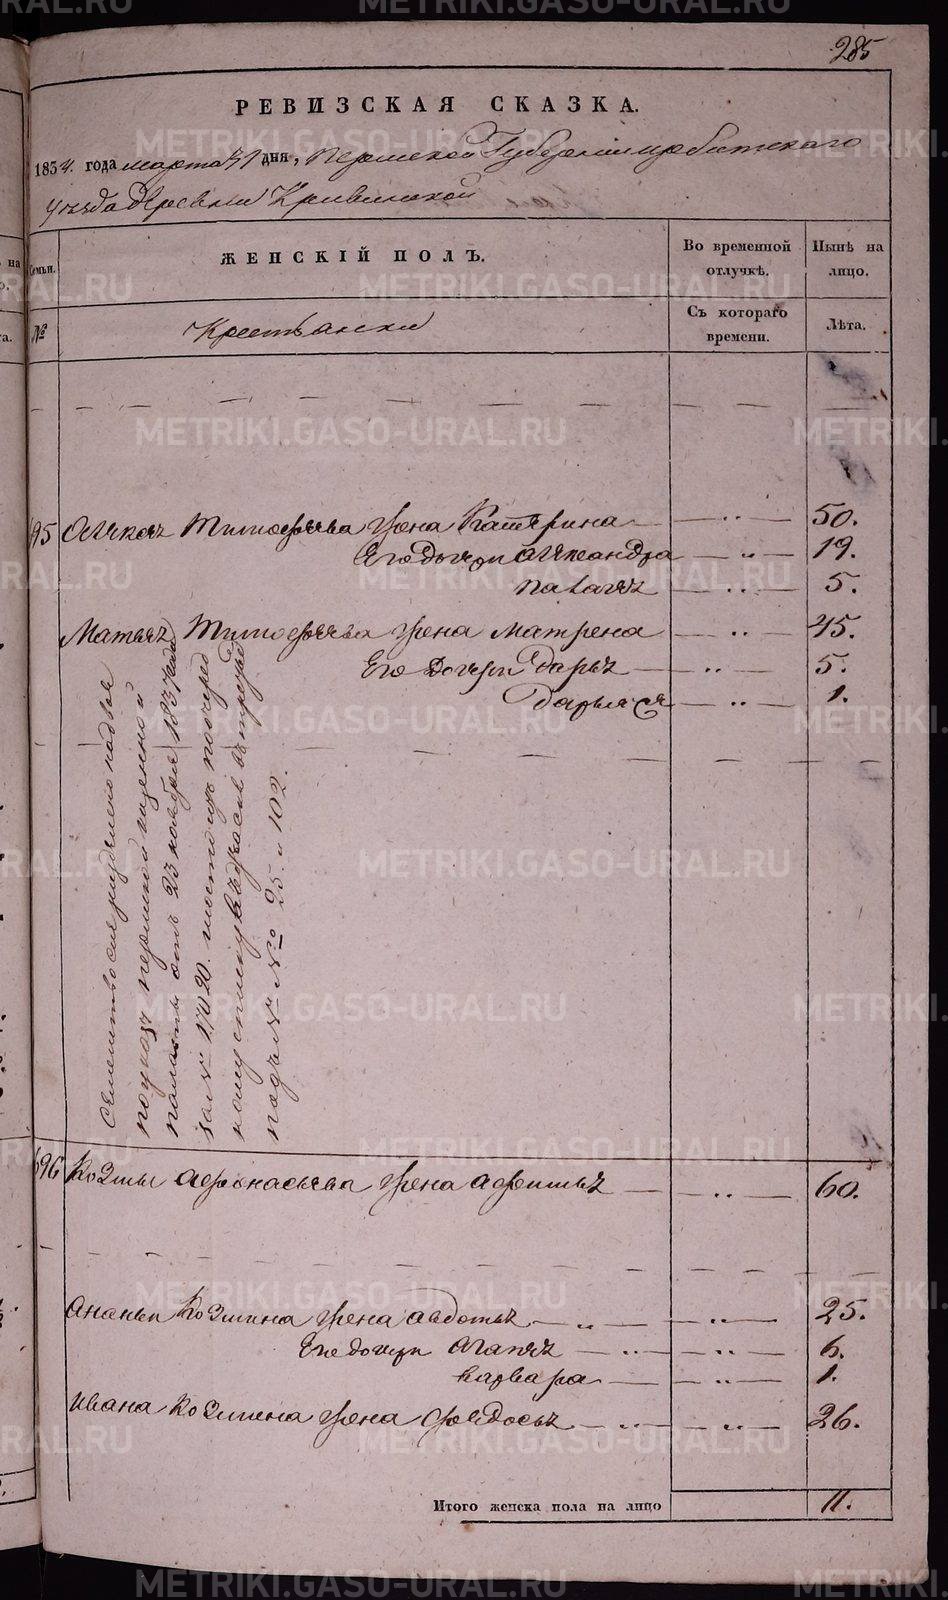 285
РЕВИЗСКАЯ СКАЗКА.
1834 года марта 31 дня, Пермской Губернии ирбитскаго
уезда деревни Кривинской
Семьи. ЖЕНСКІЙ ПОЛЪ. Во временной отлучкѣ. Нынѣ на лицо.
№ Крестьянки Съ котораго времени. Лѣта.
195 Алексея Тимофеева жена Катерина 50.
Его дочери Александра 19.
Палагея 5.
Матвея Тимофеева жена матрена 45.
Его Дочери Дарья 5.
Дарья ся 1.
Семейство сие
по указу пермской казенной
палаты отъ 23 ноября 1837 года
за № 17020.
подъ № № 25. и 102.
196 Козмы Афонасьева жена Афимья 60.
Ананьи Козмина жена авдотья 25.
Его дочери Агапея 6.
варвара 1.
Ивана Козмина жена Федосья 26.
Итого женска пола на лицо 11.
METRIKI.GASO-URAL.RU